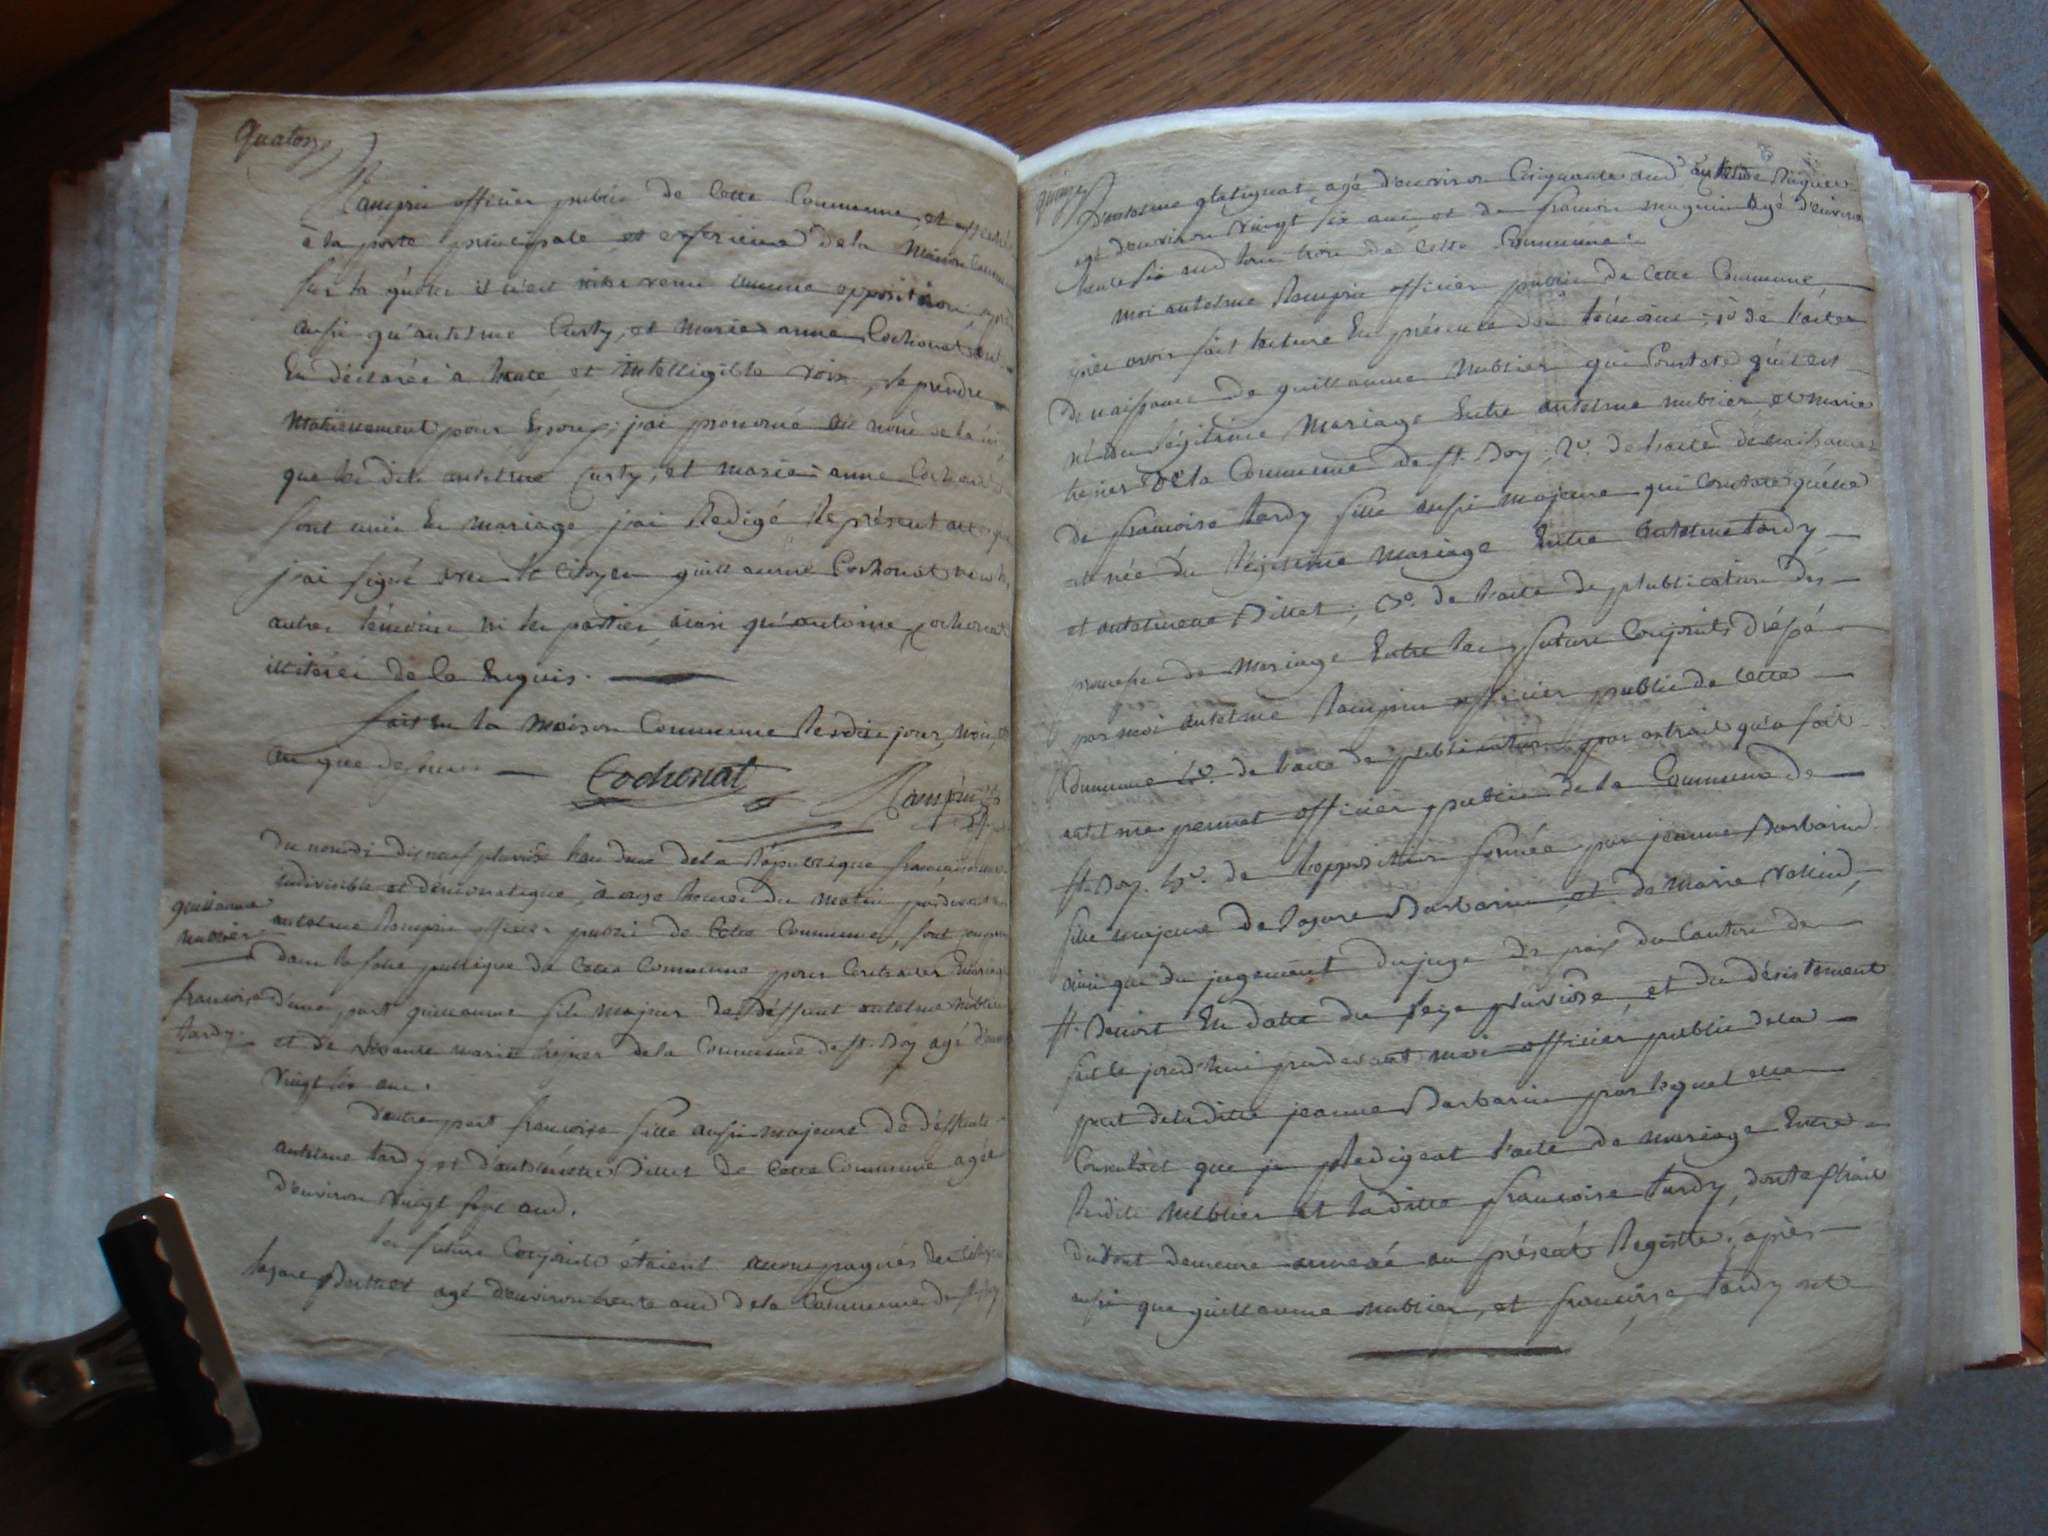 quatorze
Rampin officier public de cette Commune, et affiché
à la porte principale et exterieure de la Maison Commune
sur la quelle il n'est intervenu aucune opposition, après
aussi qu'antelme Curty, et marie anne Cochonat ont
En déclarés a haute et intelligible voix, se prendre
Mutuellement pour Epoux; j'ai prononcé au nom de la loi,
que les dits antelme Curty, et marie anne Cochonat
sont unis En mariage j'ai Redigé le présent acte que
j'ai signé avec le Citoyen guillaume Cochonat non les
autres témoins ni les parties ainsi qu'antoine Cochonat
illitérés de ce Enquis.
fait En la maison Commune lesdits jour, mois, et
an que dessus
Cochonat Rampin
Du nonodi dix neuf pluviose l'an deux de la République française une
indivisible et démocratique, à onze heures du matin pardevant moi
guillaume
Nublier
antelme Rampin officier public de cette Commune, sont comparus
dans la salle publique de cette Commune pour Contracter Mariage
françoise
tardy.
d'une part guillaume fils majeur de deffunt antelme Nublier
et de vivante marie de la Commune de st. Boy agé d'environ
vingt six ans.
d'autre part françoise fille aussi majeure de deffunts
antelme tardy et d'antelmette Billet de cette Commune agée
d'environ vingt sept ans.
les futurs Conjoints étaient accompagnés des Citoyens
lazare agé d'environ trente ans de la Commune de st. Boy
quinze
D'antelme glatignat agé d'environ Cinquante ans,
agé d'environ vingt six ans, et de françois maguin agé d'environ
trente six ans tous trois de cette Commune.
moi antelme Rampin officier public de cette Commune,
après avoir fait lecture En présence des témoins; 1º de l'acte
de naissance de guillaume Nublier qui Constate qu'il est
né du légitime Mariage Entre antelme nublier, et marie
de la Commune de st. Boy; 2º. de l'acte de naissance
de françoise tardy fille aussi majeure qui Constate qu'elle
est née du légitime mariage Entre antelme tardy
et antelmette Billet; 3º. de l'acte de publication des
promesses de Mariage Entre les futurs Conjoints
par moi antelme Rampin officier public de cette
Commune 4º. de l'acte de publication par extrait qu'a fait
antelme pennet officier public de la Commune de
st. Boy. 5º. de l'opposition formée par jeanne Barbarin
fille majeure de lazare Barbarin, et de marie
ainsi que du jugement du juge de paix du Canton de
st. Benoit En datte du seize pluviose, et du désistement
fait le jourd'hui pardevant moi officier public de la
part de la ditte jeanne Barbarin par lequel elle
Consentoit que je Redigeat l'acte de mariage Entre
ledit Nublier et la ditte françoise tardy, dont extrait
du tout demeure annexé au présent Registre, après
aussi que guillaume nublier, et françoise tardy ont